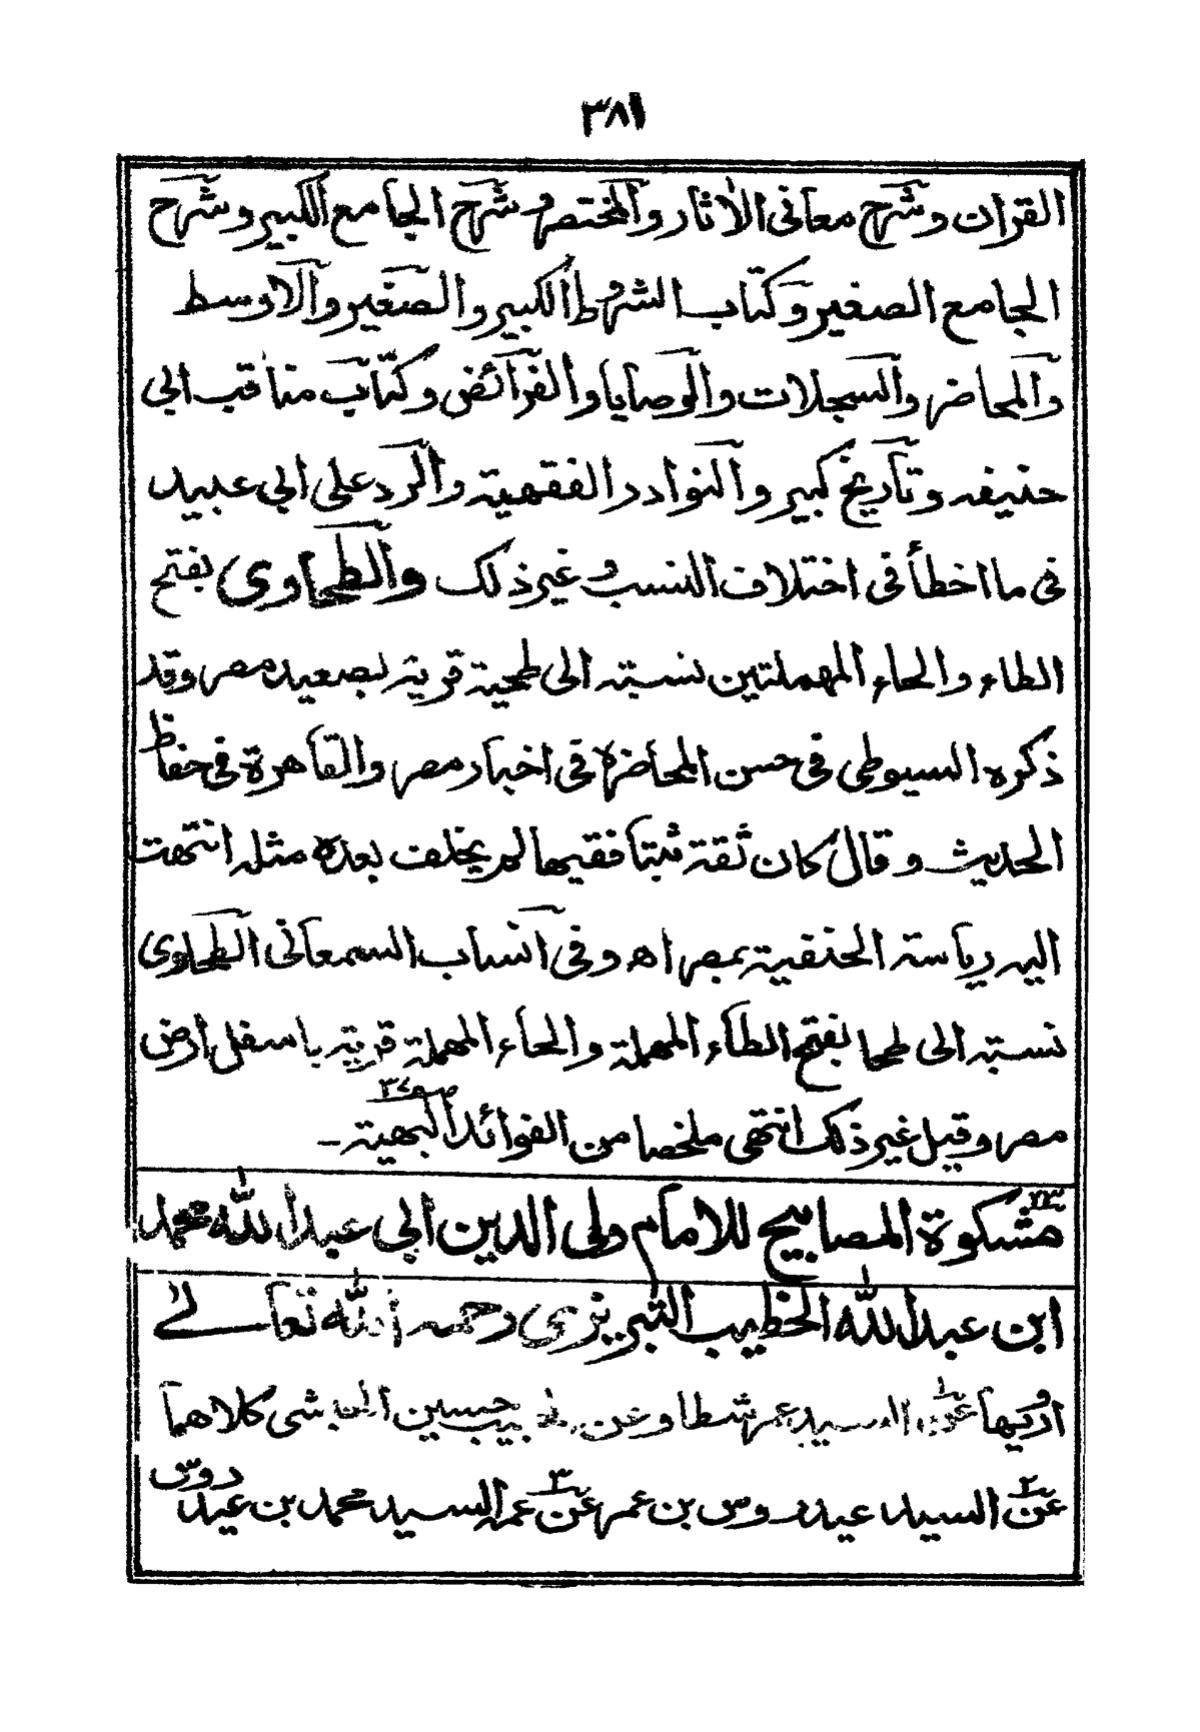 ٣٨١
القرآن وشرح معانى الآثار والمختصر وشرح الجامع الكبير وشرح
الجامع الصغير وكتاب الشروط الكبير والصغير والاوسط
والمحاضر والسجلات والوصايا والفرائض وكتاب مناقب ابى
حنيفه وتاريخ كبير والنوادر الفقهية والرد على ابى عبيد
فى ما اخطأ فى اختلاف النسب وغير ذلك والطحاوى بفتح
الطاء والحاء المهملتين نسبته الى طحية قرية بصعيد مصر وقد
ذكره السيوطى فى حسن المحاضرة فى اخبار مصر والقاهرة فى حفاظ
الحديث وقال كان ثقة ثبتا فقيها لم يخلف بعده مثله انتهت
اليه رياسة الحنفية بمصر اه وفى انساب السمعانى الطحاوى
نسبته الى طحا بفتح الطاء المهملة والحاء المهملة قرية باسفل ارض
مصر وقيل غير ذلك انتهى ملخصا من الفوائد البهية ـ
مشكوة المصابيح للامام ولى الدين ابى عبد الله محمد
ابن عبد الله الخطيب التبريزى رحمه الله تعالى
ارويها عن السيد عمر شطا وعن حسين الحبشى كلاهما
عن السيد عيدروس بن عمر عن عمه السيد محمد بن عيدروس